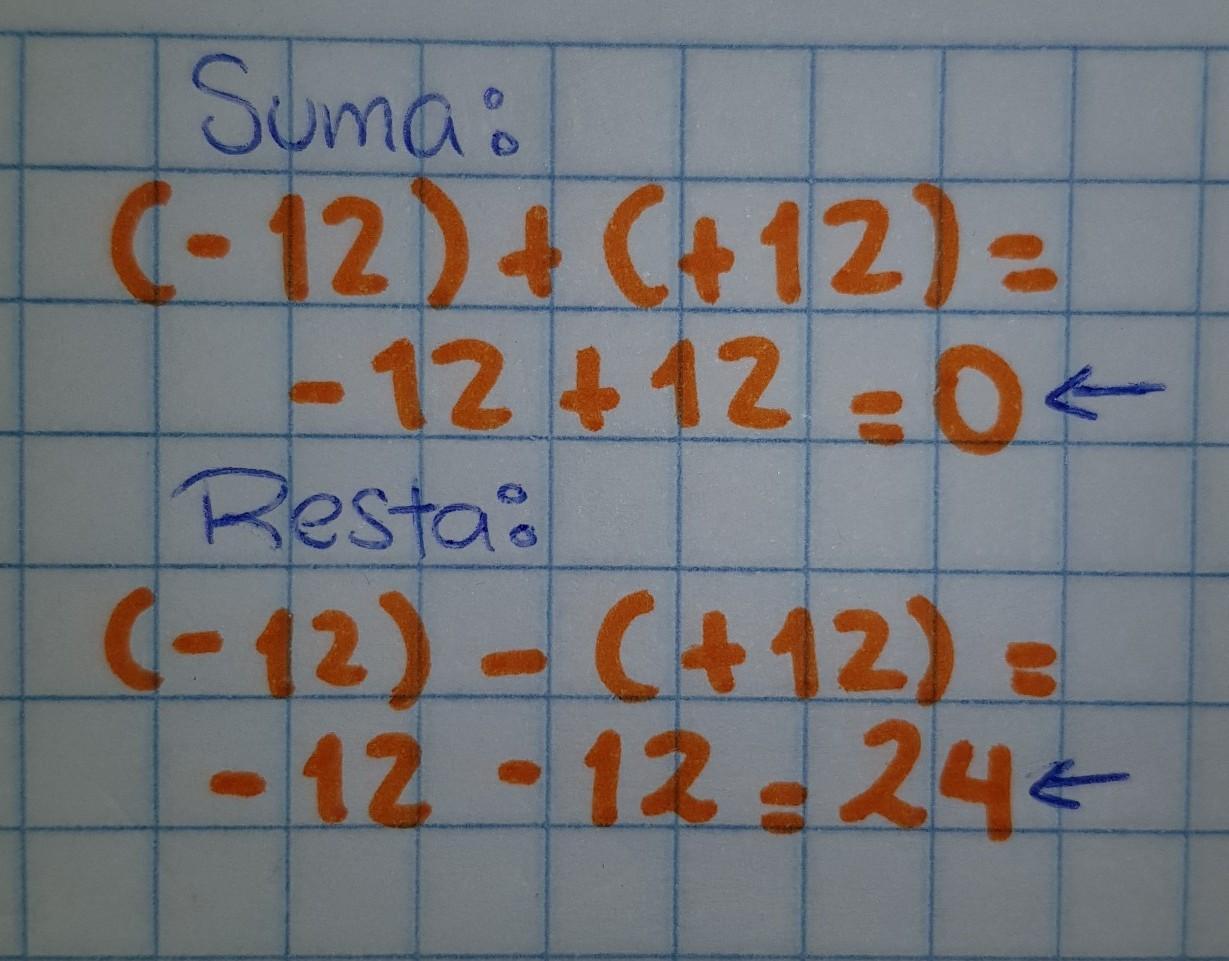 Suma:
(-12)+(+12)=
-12+12=0←
Resta:
(-12)-(+12)=
-12-12=24←